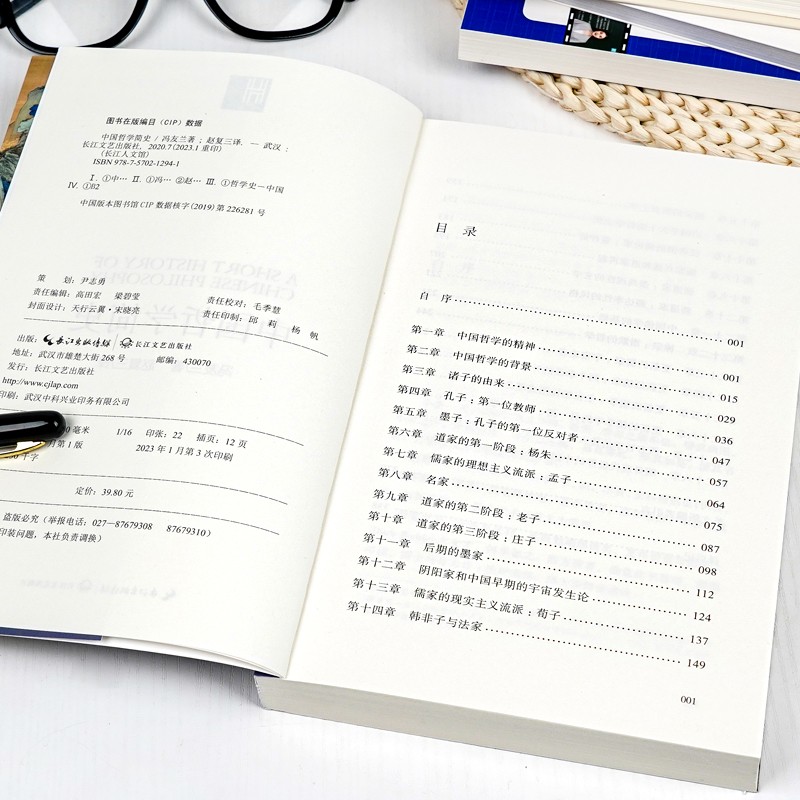 图书在版编目（CIP）数据
中国哲学简史 / 冯友兰著；赵复三译. — 武汉：
长江文艺出版社，2020.7（2023.1 重印）
（长江人文馆）
ISBN 978-7-5702-1294-1
Ⅰ. ①中… Ⅱ. ①冯… ②赵… Ⅲ. ①哲学史－中国
Ⅳ. ①B2
中国版本图书馆 CIP 数据核字（2019）第 226281 号
策　　划：尹志勇
责任编辑：高田宏　梁碧莹　责任校对：毛季慧
封面设计：天行云翼·宋晓亮　责任印制：邱　莉　杨　帆
出版：长江出版传媒　长江文艺出版社
地址：武汉市雄楚大街 268 号　邮编：430070
发行：长江文艺出版社
http://www.cjlap.com
印刷：武汉中科兴业印务有限公司
毫米　1/16　印张：22　插页：12 页
月第 1 版　2023 年 1 月第 3 次印刷
千字
定价：39.80 元
盗版必究（举报电话：027—87679308　87679310）
印装问题，本社负责调换）
目　录
自　序……001
第一章　中国哲学的精神……001
第二章　中国哲学的背景……015
第三章　诸子的由来……029
第四章　孔子：第一位教师……036
第五章　墨子：孔子的第一位反对者……047
第六章　道家的第一阶段：杨朱……057
第七章　儒家的理想主义流派：孟子……064
第八章　名家……075
第九章　道家的第二阶段：老子……087
第十章　道家的第三阶段：庄子……098
第十一章　后期的墨家……112
第十二章　阴阳家和中国早期的宇宙发生论……124
第十三章　儒家的现实主义流派：荀子……137
第十四章　韩非子与法家……149
001